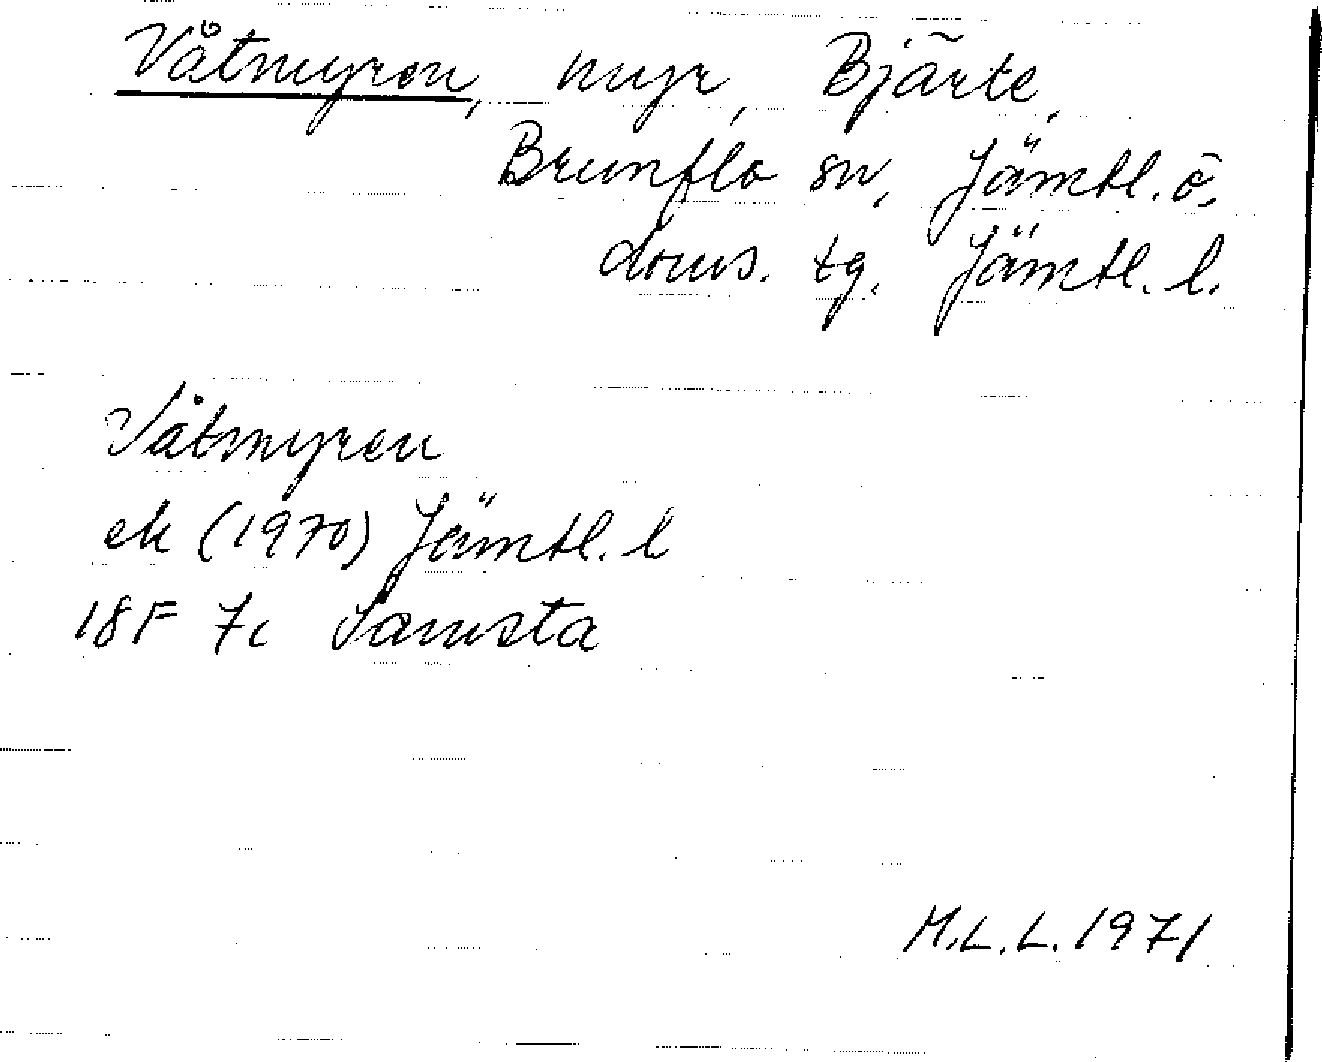 Våtmyren, myr, Bjärte,
Brunflo sn, Jämtl. ö.
doms. tg. Jämtl. l.
Våtmyren
ek (1970) Jämtl. l
18F 7c Samsta
M.L.L. 1971